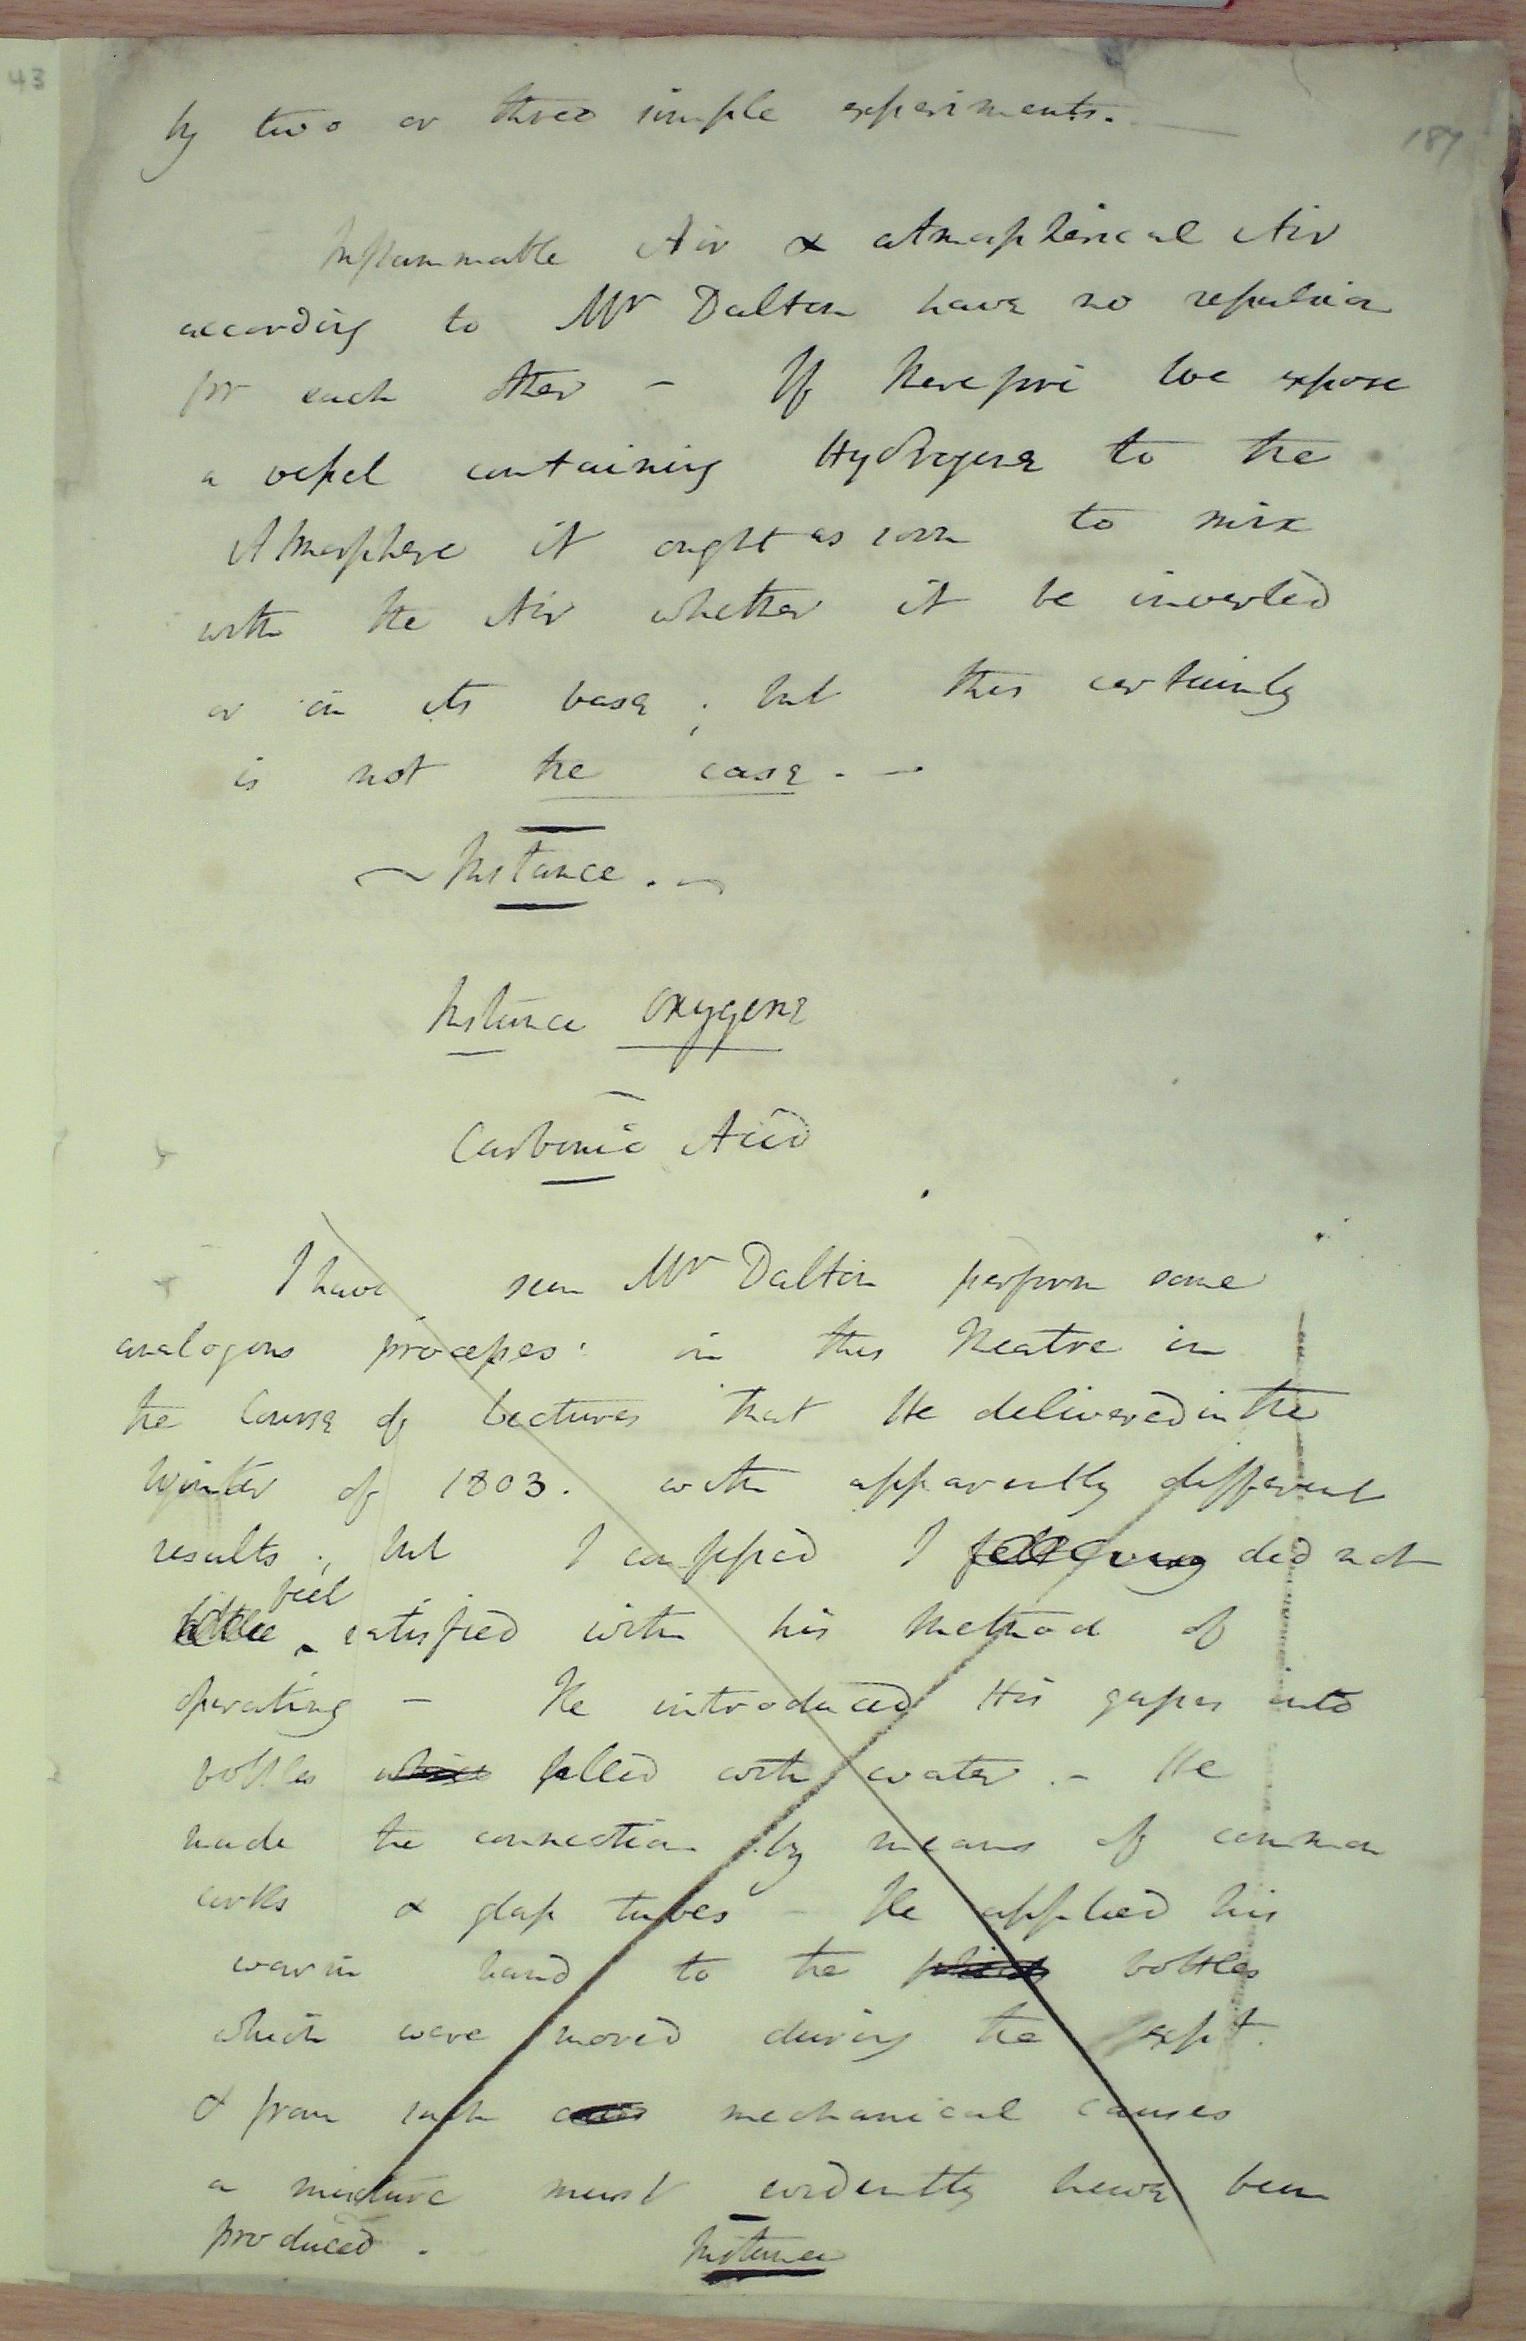 43
by two or three simple experiments. —
187
Inflammable Air & atmospherical Air
according to Mr Dalton have no repulsion
for each other — If therefore we expose
a vessel containing Hydrogene to the
Atmosphere it ought as soon to mix
with the Air whether it be inverted
or on its base; but this certainly
is not the case. —
Instance. —
Instance Oxygene
Carbonic Acid
I have seen Mr Dalton perform some
analogous processes: in this Theatre in
the Course of Lectures that He delivered in the
Winter of 1803. with apparently different
results; but I confess'd I did not
feel
satisfied with his method of
operating — He introduced His gases into
bottles which filled with water. — He
made the connection by means of common
corks & glass tubes — He applied his
warm hand to the bottles
which were moved during the expt.
& from such mechanical causes
a mixture must evidently have been
produced. Instance